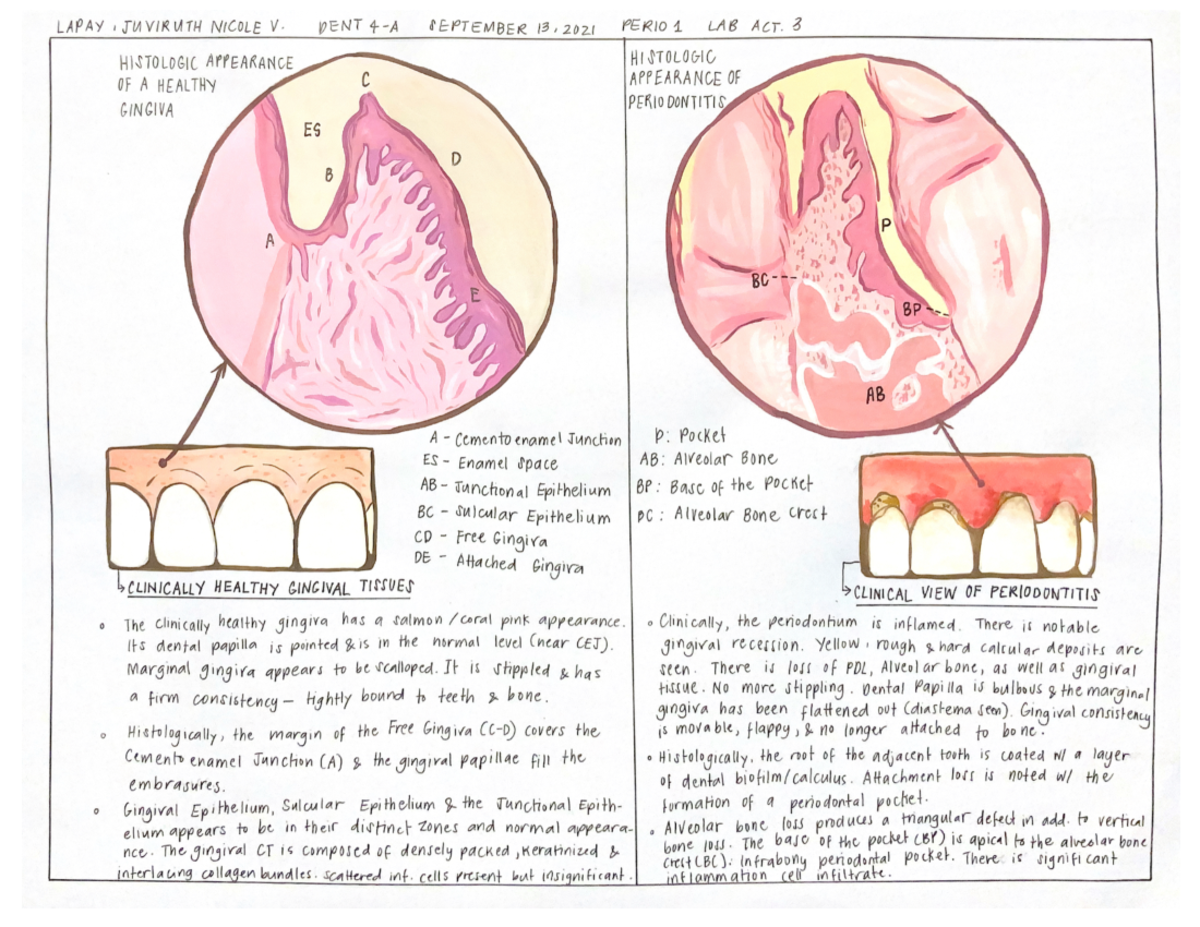 LAPAY, JUVIRUTH NICOLE V. DENT 4-A SEPTEMBER 13, 2021 PERIO 1 LAB ACT. 3
HISTOLOGIC APPEARANCE
OF A HEALTHY
GINGIVA
C
ES
D
B
A
E
A - Cementoenamel Junction
ES - Enamel Space
AB - Junctional Epithelium
BC - Sulcular Epithelium
CD - Free Gingiva
DE - Attached Gingiva
CLINICALLY HEALTHY GINGIVAL TISSUES
The clinically healthy gingiva has a salmon/coral pink appearance.
Its dental papilla is pointed & is in the normal level (near CEJ).
Marginal gingiva appears to be scalloped. It is stippled & has
a firm consistency - tightly bound to teeth & bone.
Histologically, the margin of the Free Gingiva (C-D) covers the
Cementoenamel Junction (A) & the gingival papillae fill the
embrasures.
Gingival Epithelium, Sulcular Epithelium & the Junctional Epith-
elium appears to be in their distinct zones and normal appeara-
nce. The gingival CT is composed of densely packed, keratinized &
interlacing collagen bundles. Scattered inf. cells present but insignificant.
HISTOLOGIC
APPEARANCE OF
PERIODONTITIS
P
BC---
BP---
AB
P: Pocket
AB: Alveolar Bone
BP: Base of the Pocket
BC: Alveolar Bone Crest
CLINICAL VIEW OF PERIODONTITIS
Clinically, the periodontium is inflamed. There is notable
gingival recession. Yellow, rough & hard calcular deposits are
seen. There is loss of PDL, Alveolar bone, as well as gingival
tissue. No more stippling. Dental Papilla is bulbous & the marginal
gingiva has been flattened out (diastema sem). Gingival consistency
is movable, flappy, & no longer attached to bone.
Histologically, the root of the adjacent tooth is coated w/ a layer
of dental biofilm/calculus. Attachment loss is noted w/ the
formation of a periodontal pocket.
Alveolar bone loss produces a triangular defect in add. to vertical
bone loss. The base of the pocket (BP) is apical to the alveolar bone
crest (BC): Infrabony periodontal pocket. There is significant
inflammation cell infiltrate.